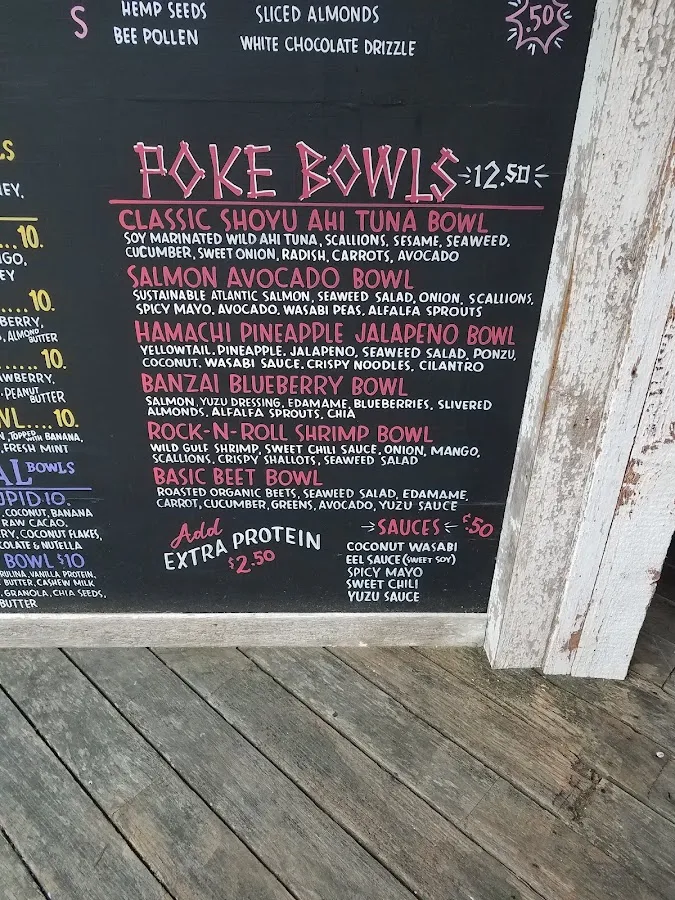 S
HEMP SEEDS
SLICED ALMONDS
.50
BEE POLLEN
WHITE CHOCOLATE DRIZZLE
POKE BOWLS 12.50
CLASSIC SHOYU AHI TUNA BOWL
SOY MARINATED WILD AHI TUNA, SCALLIONS, SESAME, SEAWEED,
CUCUMBER, SWEET ONION, RADISH, CARROTS, AVOCADO
SALMON AVOCADO BOWL
SUSTAINABLE ATLANTIC SALMON, SEAWEED SALAD, ONION, SCALLIONS,
SPICY MAYO, AVOCADO, WASABI PEAS, ALFALFA SPROUTS
HAMACHI PINEAPPLE JALAPENO BOWL
YELLOWTAIL, PINEAPPLE, JALAPENO, SEAWEED SALAD, PONZU,
COCONUT, WASABI SAUCE, CRISPY NOODLES, CILANTRO
BANZAI BLUEBERRY BOWL
SALMON, YUZU DRESSING, EDAMAME, BLUEBERRIES, SLIVERED
ALMONDS, ALFALFA SPROUTS, CHIA
ROCK-N-ROLL SHRIMP BOWL
WILD GULF SHRIMP, SWEET CHILI SAUCE, ONION, MANGO,
SCALLIONS, CRISPY SHALLOTS, SEAWEED SALAD
BASIC BEET BOWL
ROASTED ORGANIC BEETS, SEAWEED SALAD, EDAMAME,
CARROT, CUCUMBER, GREENS, AVOCADO, YUZU SAUCE
Add
EXTRA PROTEIN
$2.50
SAUCES .50
COCONUT WASABI
EEL SAUCE (SWEET SOY)
SPICY MAYO
SWEET CHILI
YUZU SAUCE
LS
EY,
...10.
GO,
EY
....10.
BERRY,
, ALMOND BUTTER
.....10.
AWBERRY,
, PEANUT BUTTER
WL....10.
N, TOPPED WITH BANANA,
, FRESH MINT
AL BOWLS
UPID 10
, COCONUT, BANANA
RAW CACAO,
RY, COCONUT FLAKES,
COLATE & NUTELLA
BOWL $10
RULINA, VANILLA PROTEIN,
BUTTER, CASHEW MILK
, GRANOLA, CHIA SEEDS,
BUTTER